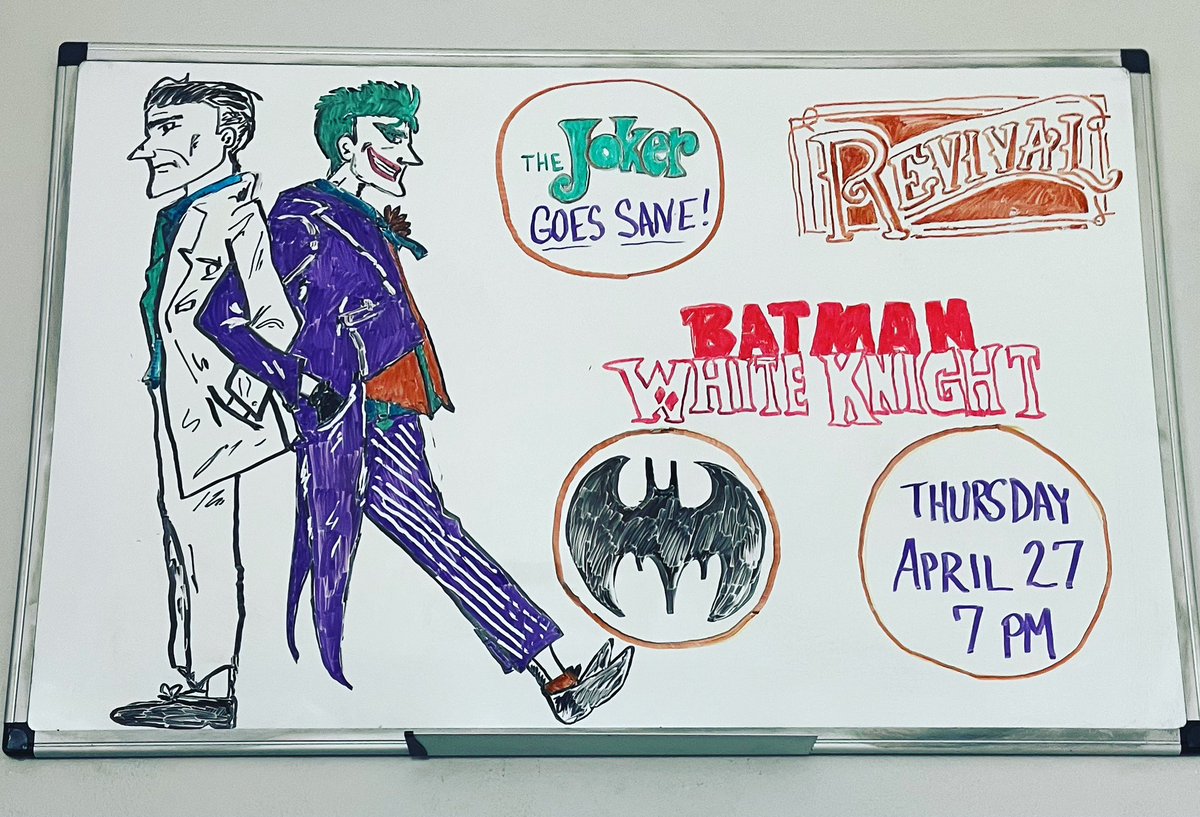 THE Joker
GOES SANE!
REVIVAL
BATMAN
WHITE KNIGHT
THURSDAY
APRIL 27
7 PM